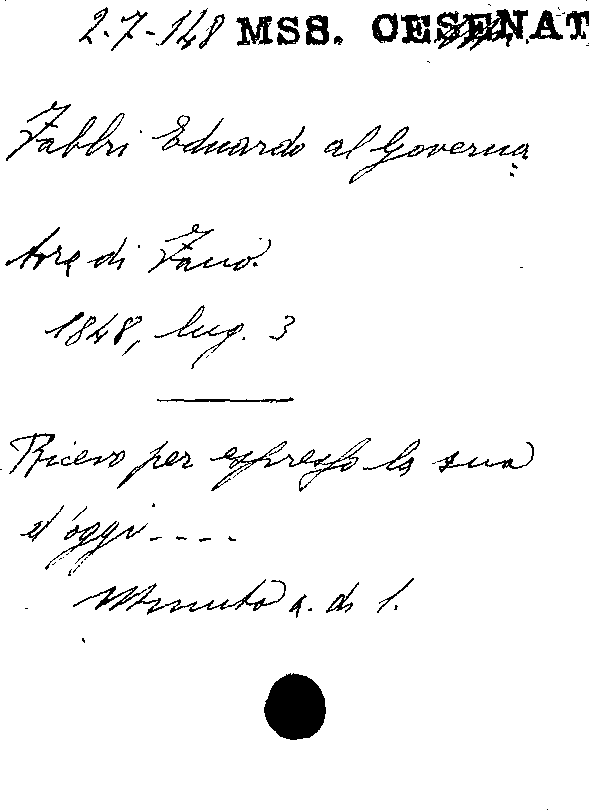 2-7-148 MSS. CESENAT
Fabbri Eduardo al Governa=
tore di Fano.
1848, lug. 3
Ricevo per espresso la sua
d'oggi----
Minuta a. di l.